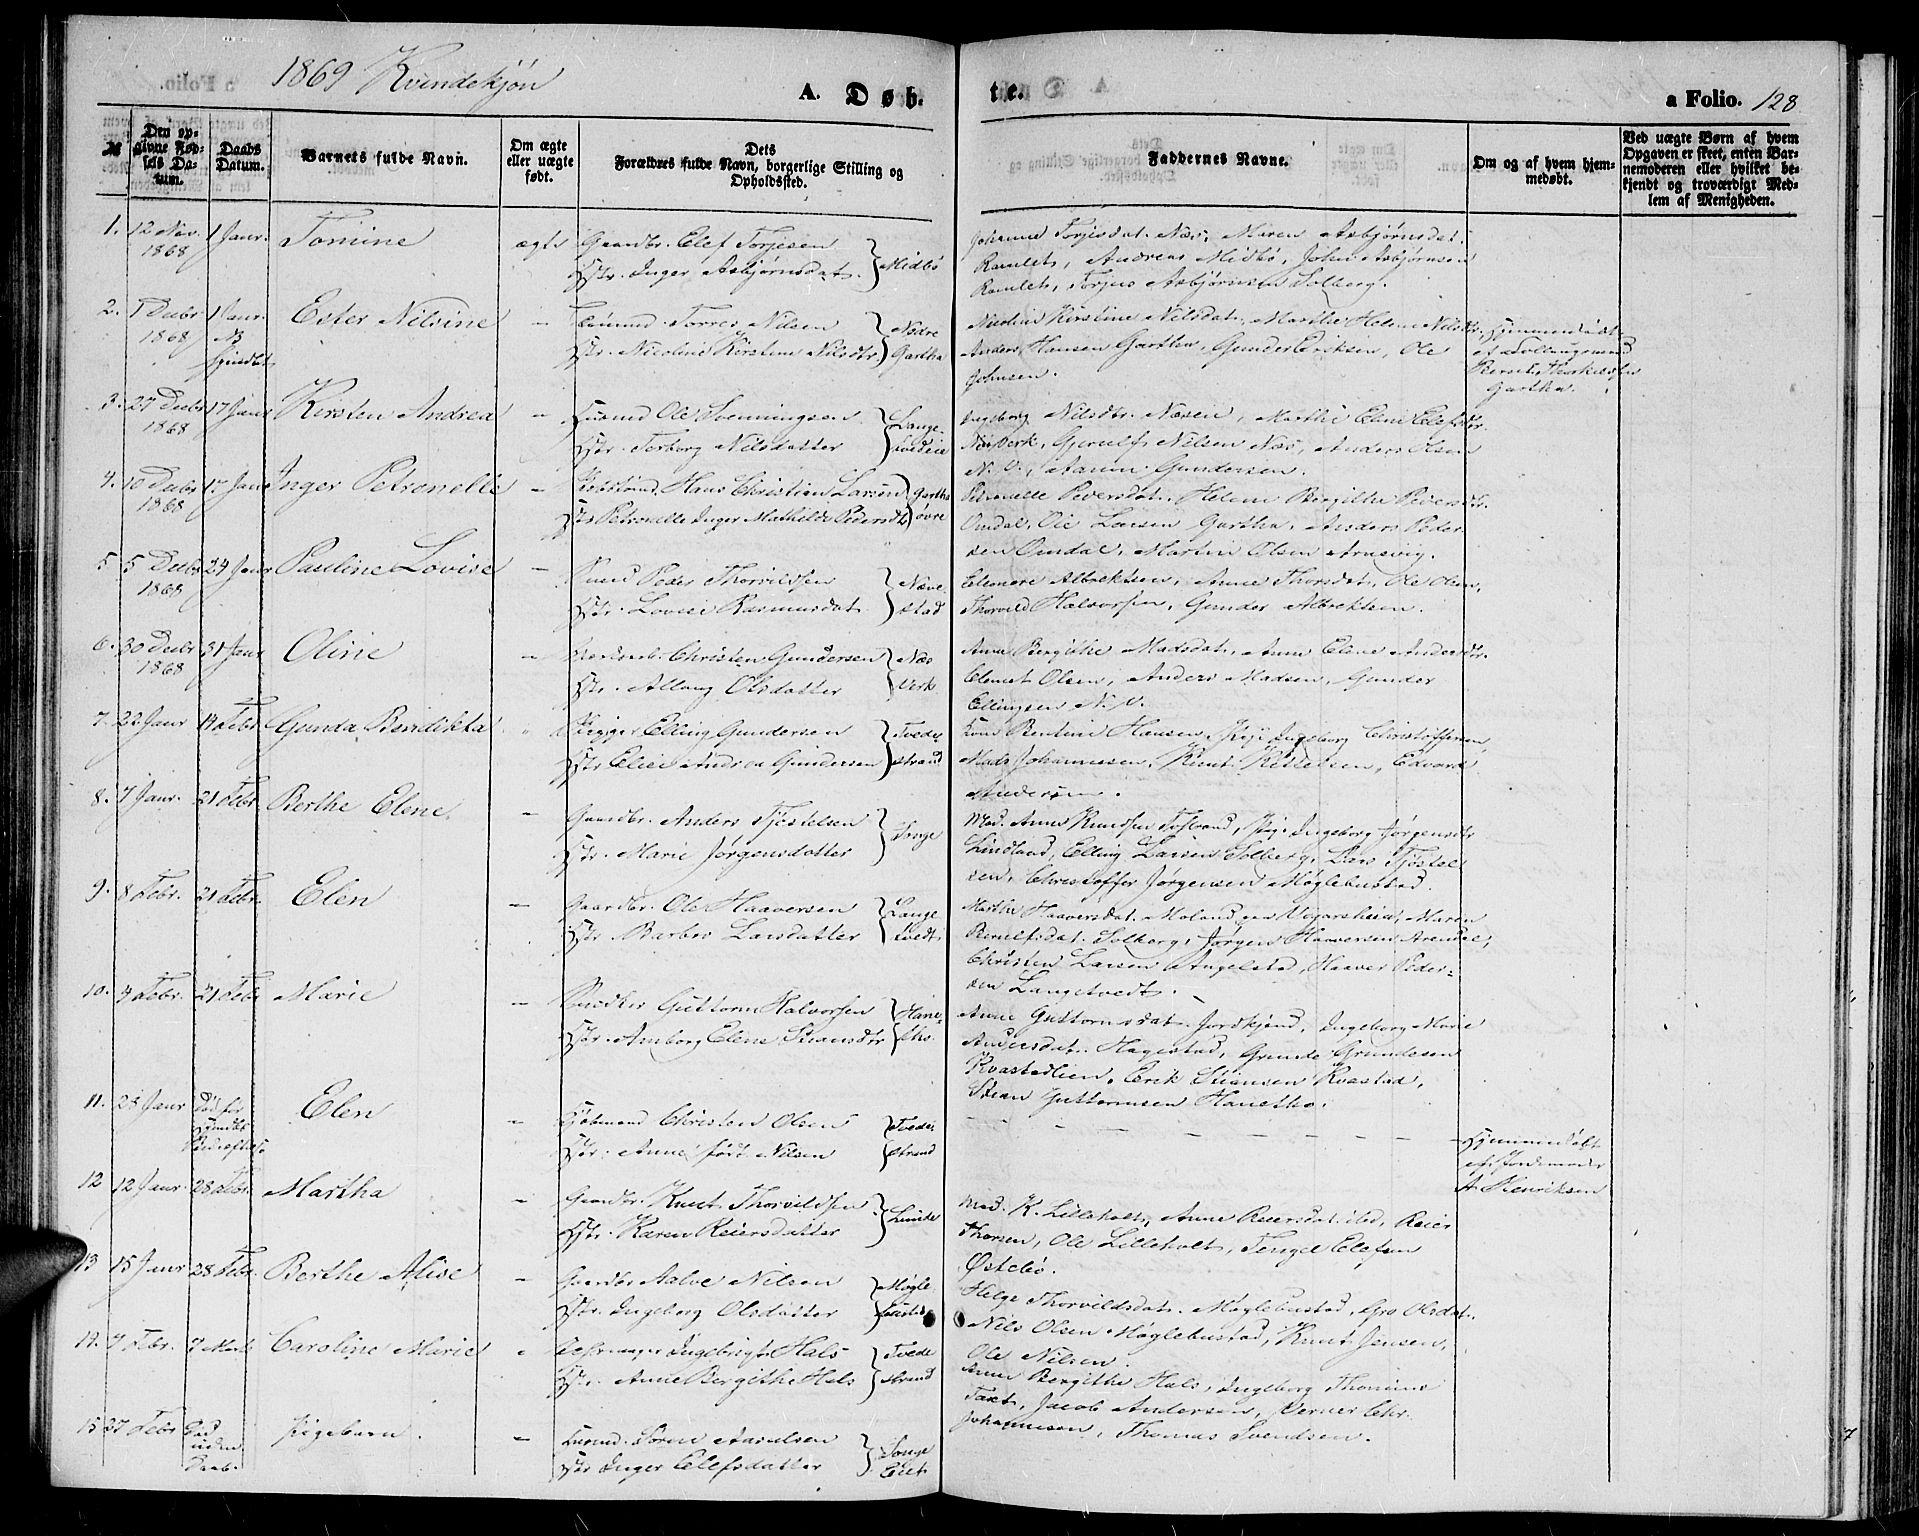 1869 Kvindekjön
A. Døb-
te.
a Folio. 128
№
Den op-
givne Fød-
sels Da-
tum.
Daabs
Datum.
Barnets fulde Navn.
Om ægte
eller uægte
født.
Dets
Forældres fulde Navn, borgerlige Stilling og
Opholdssted.
Faddernes Navne.
Om og af hvem hjem-
medøbt.
Ved uægte Børn af hvem
Opgaven er skeet, enten Bar-
nemoderen eller hvilket be-
kjendt og troværdigt Med-
lem af Menigheden.
1. 12 Nov. 1 Janr. Tomine ægte Gaardbr. Elef Torjesen
1868 Hstr. Inger Asbjørnsdat. Midbö
Johanne Torjesdat. Næs, Maren Asbjørnsdat.
Ramlet, Andreas Midbö, John Asbjørnsen
Ramlet, Torjus Asbjørnsen Solberg.
2. 1 Decbr 1 Janr. Ester Nilsine - Torres Nilsen Nedre
1868 Hstr. Nicoline Kirstine Nilsdtr Gartha
Nicoline Kirstine Nilsdat., Marthe Helene Nilsdtr.
Anders Hansen Gartha, Gunder Eriksen, Ole
Johnsen.
Hjemmedøbt
af
Bernt Thorkildsen
Gartha.
3. 27 Decbr 17 Janr Kirsten Andrea - Husmd Ole Svenningsen Lange-
1868 Hstr. Terborg Nilsdatter tvedteie
Ingeborg Nilsdtr. Næsen, Marthe Elene Elefsdtr.
Næs Verk, Gjerulf Nilsen Næs, Anders Olsen
N. V., Aanon Gundersen.
4. 10 Decbr 17 Janr Inger Petronelle - Hans Christian Larsen Gartha
1868 Hstr Petronelle Inger Mathilde Pedersdtr øvre
Petronelle Pedersdat., Helene Bergithe Pedersdtr.
Omdal, Ole Larsen Gartha, Anders Peder-
sen Omdal, Martin Olsen Arnevig.
5 5 Decbr 24 Janr Pauline Lovise - Smed Peder Thorvildsen Næve-
1868 Hstr. Lovise Rasmusdat. stad
Eleonore Albrektsen, Anne Thorsdat., Ole Olsen,
Thorvild Halvorsen, Gunder Albrektsen.
6. 30 Decbr 31 Janr Oline - Christen Gundersen Næs
1868 Hstr. Allaug Olsdatter Verk
Anne Bergithe Madsdat., Anne Elene Andersdtr.
Clemet Olsen, Anders Madsen, Gunder
Ellingsen N. V.
7. 22 Janr 14 Febr Gunda Bendikta " Rigger Elling Gundersen Tvede-
Hstr Elise Andrea Gundersen strand
Kone Bentine Hansen, Pige Ingeborg Christoffersen,
Mads Johannessen, Knut Kittelsen, Edvard
Andersen.
8. 7 Janr. 21 Febr. Berthe Elene - Gaardbr. Anders Tjøstelsen
Hstr. Marie Jørgensdatter
Mad. Anne Knudsen Tostrand, Pige Ingeborg Jørgensdtr
Lindland, Elling Larsen Solberg, Lars Tjøstel-
sen, Christoffer Jørgensen Møglebustad.
9. 8 Febr. 21 Febr. Elen - Gaardbr. Ole Haaversen Lange
Hstr Barbro Larsdatter tvedt
Marthe Haaversdat. Moland paa Vegarsheien, Maren
Berulfsdat. Solberg, Jørgen Haaversen Arendal,
Christen Larsen Angelstad, Haaver Peder-
sen Langetvedt.
10. 4 Febr. 21 Febr Marie - Guttorm Halvorsen Hane-
Hstr. Amborg Elene Stiansdtr tho.
Anne Guttormsdat. Jordkjend, Ingeborg Marie
Andersdat. Hagestad, Grunde Grundesen
Kvastadlien, Erik Stiansen Kvastad,
Stian Guttormsen Hanetho.
11. 23 Janr Död før Elen " Kjøbmand Christen Olsen Tvede-
Hstr. Anne født Nilsen strand
Hjemmedøbt
af Jordemoder
A. Henriksen
12 12 Janr. 28 Febr. Martha - Gaardbr. Knut Thorvildsen Lunde
Hstr. Karen Reiersdatter
Mad. K. Lilleholt, Anne Reiersdat. ibd, Reier
Thorsen, Ole Lilleholt, Tengel Elefsen
Østebø.
13 15 Janr 28 Febr. Berthe Alise - Gaardbr Aalve Nilsen Møgle
Hstr. Ingeborg Olsdatter bustad
Helge Thorvildsdat. Møglebustad, Gro Olsdat.
Nils Olsen Møglebustad, Knut Jensen,
Ole Nilsen.
14. 4 Febr. 7 Marts Caroline Marie " Ingebrigt Hals Tvede
Hstr. Anne Bergithe Hals strand
Anne Bergithe Hals, Ingeborg Thomine
Taxt, Jacob Andersen, Verner Chr.
Johannesen, Thomas Svendsen.
15 27 Febr Död Pigebarn. - Husmd. Søren Aanlsen Songe
uden Hstr Inger Elefsdatter Eiet
Daab.